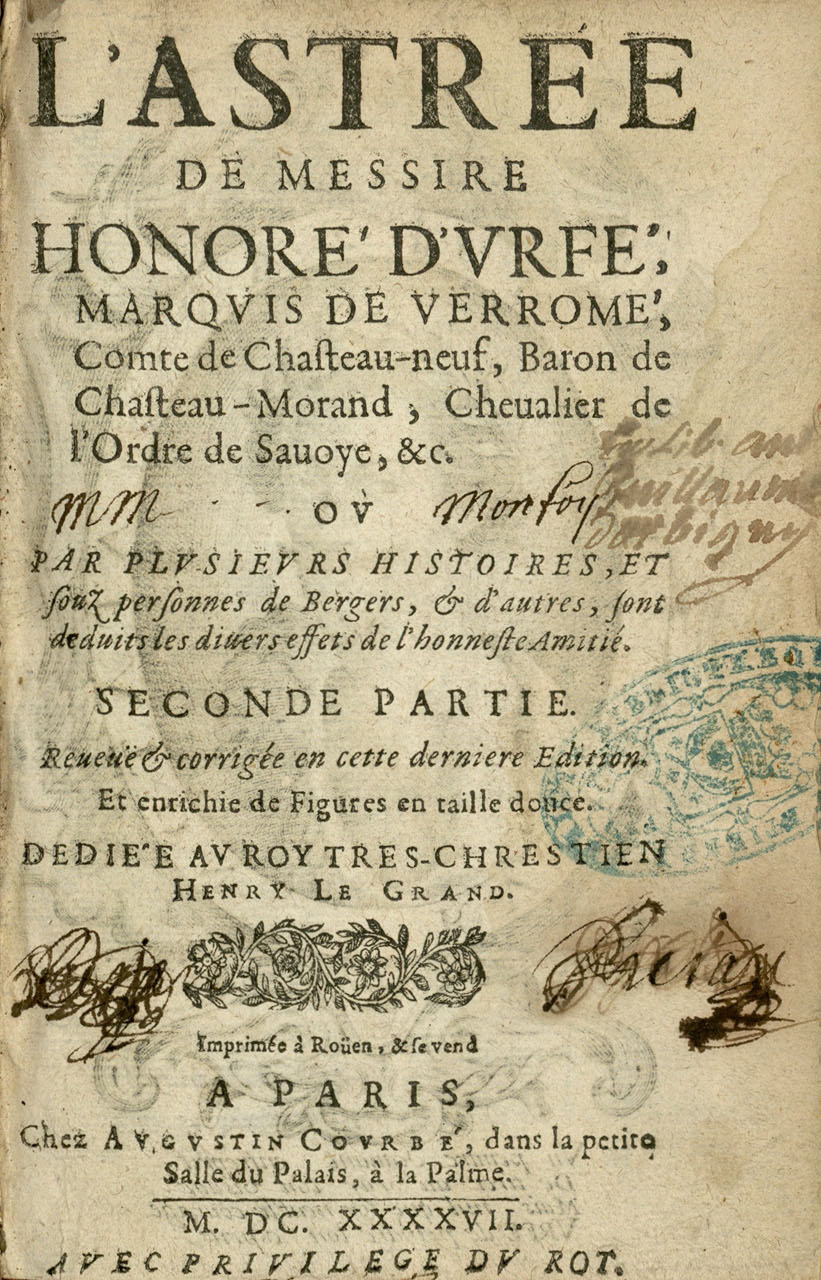 L'ASTRÉE
DE MESSIRE
HONORE' D'VRFE',
MARQVIS DE VERROME',
Comte de Chaſteau-neuf, Baron de
Chaſteau-Morand, Cheualier de
l'Ordre de Sauoye, &c.
mm OV Monfoy
PAR PLVSIEVRS HISTOIRES, ET
ſouz perſonnes de Bergers, & d'autres, ſont
deduits les diuers effets de l'honneſte Amitié.
SECONDE PARTIE.
Reueuë & corrigée en cette derniere Edition.
Et enrichie de Figures en taille douce.
DEDIE'E AV ROY TRES-CHRESTIEN
HENRY LE GRAND.
Imprimée à Roüen, & ſe vend
A PARIS,
Chez AVGVSTIN COVRBE', dans la petite
Salle du Palais, à la Palme.
M. DC. XXXXVII.
AVEC PRIVILEGE DV ROY.